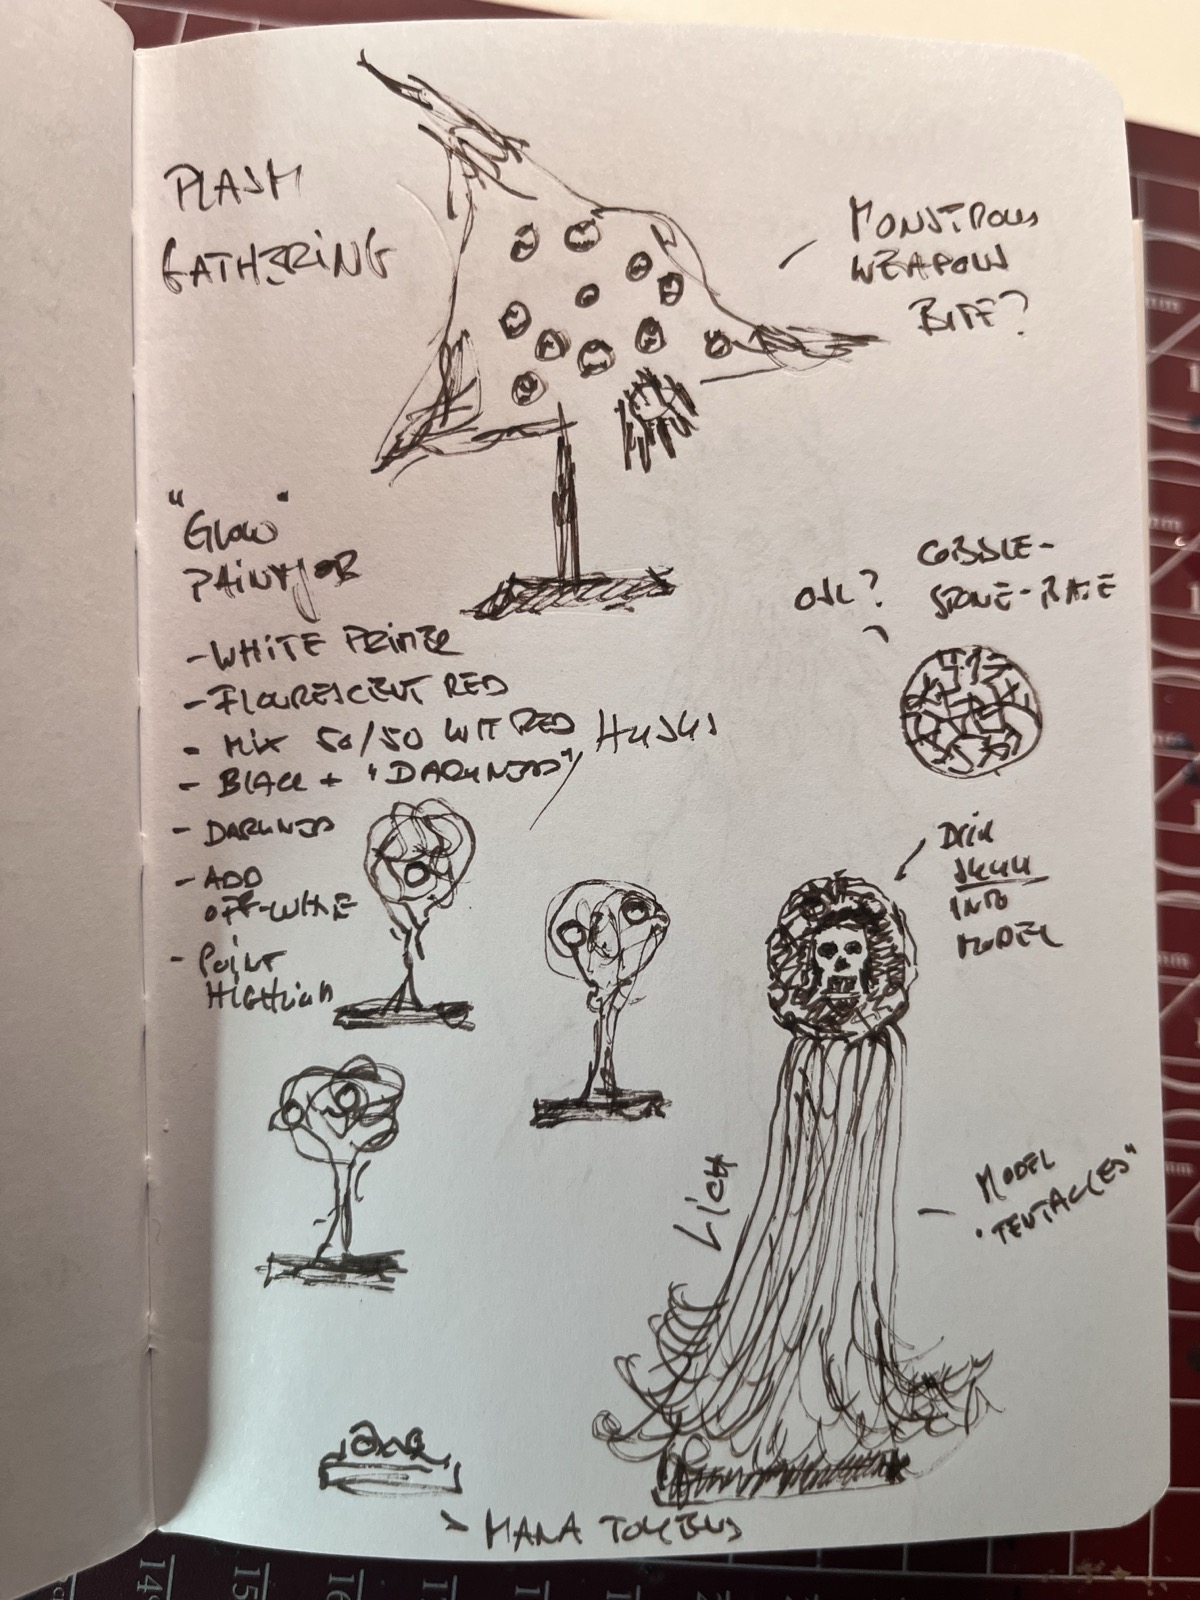 PLASM
GATHERING
MONSTROUS
WEAPON
BITE?
"GLOW"
PAINTJOB
- WHITE PRIMER
- FLOURESCENT RED
- MIX 50/50 WIT RED
- BLACK + "DARKNESS"
- DARKNESS
- ADD
OFF-WHITE
- POINT
HIGHLIGH
HUSKS
COBBLE-
STONE-BASE
DRILL
SKULL
INTO
MODEL
LICH
MODEL
"TENTACLES"
> MANA TOKENS